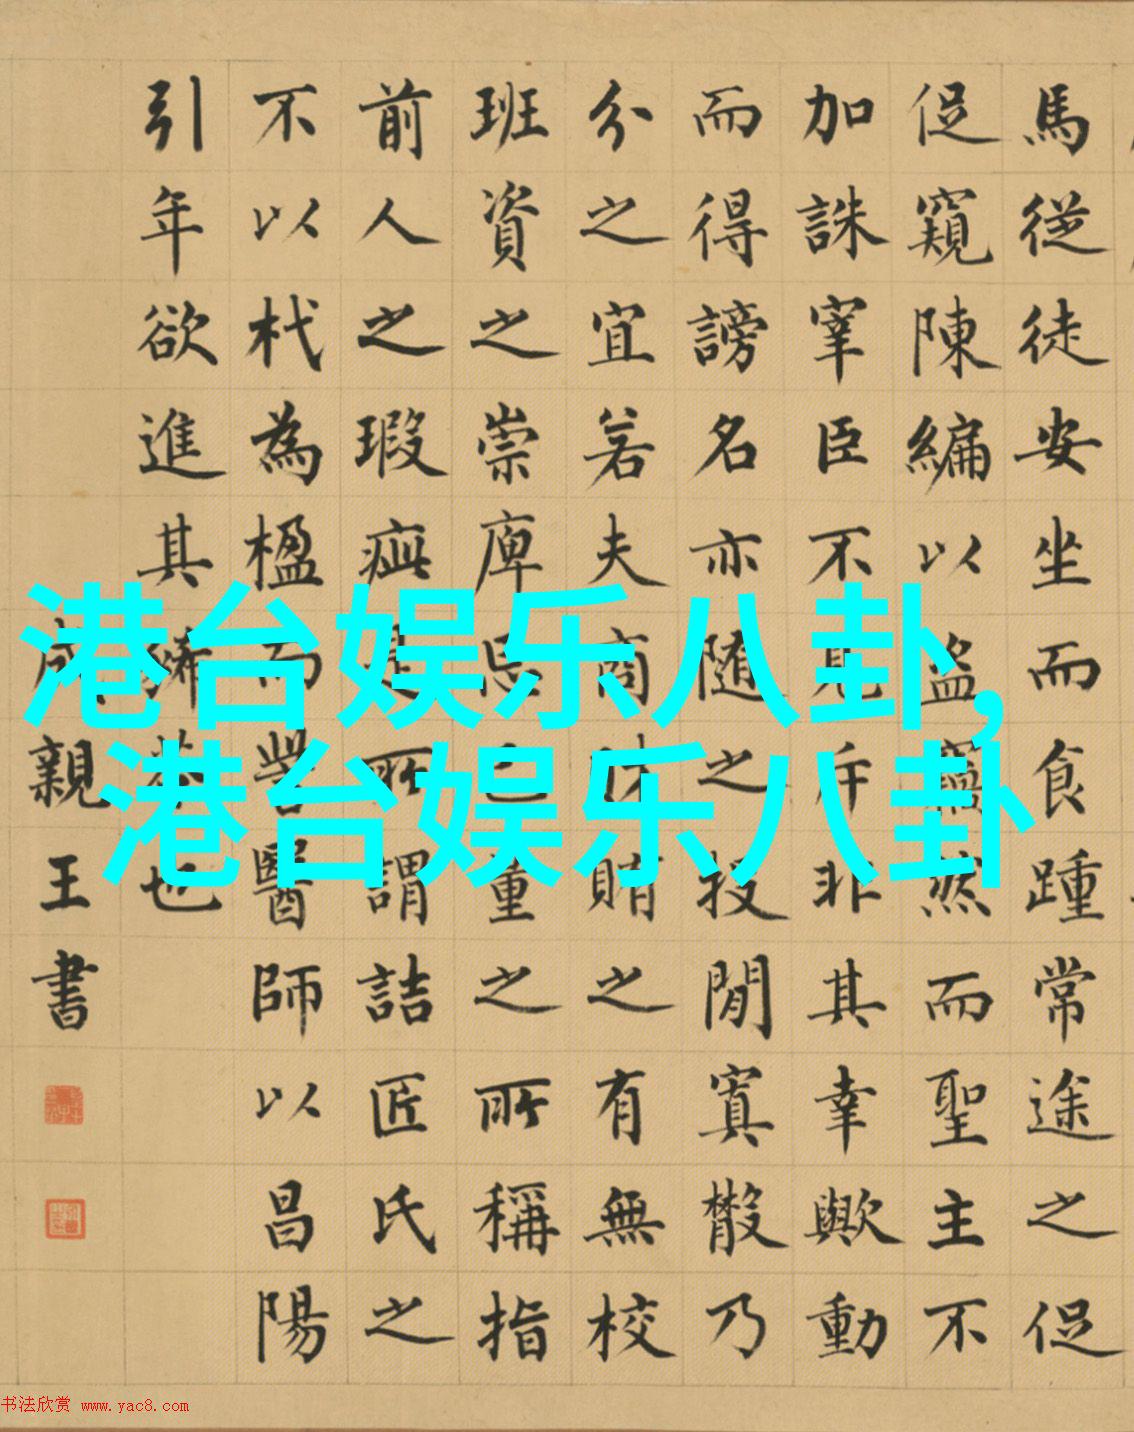 港台娱乐八卦,
港台娱乐八卦
馬從徒安坐而食踵常途之促
促窺陳編以盜竊然而聖主不
加誅宰臣不見斥非其幸歟動
而得謗名亦随之投閒寘散乃
分之宜若夫商財賄之有無校
班資之崇庳忘己量之所稱指
前人之瑕疵是所謂詰匠氏之
不以杙為楹而訾醫師以昌陽
引年欲進其豨苓也
成親王書
书法欣赏 www.yac8.com